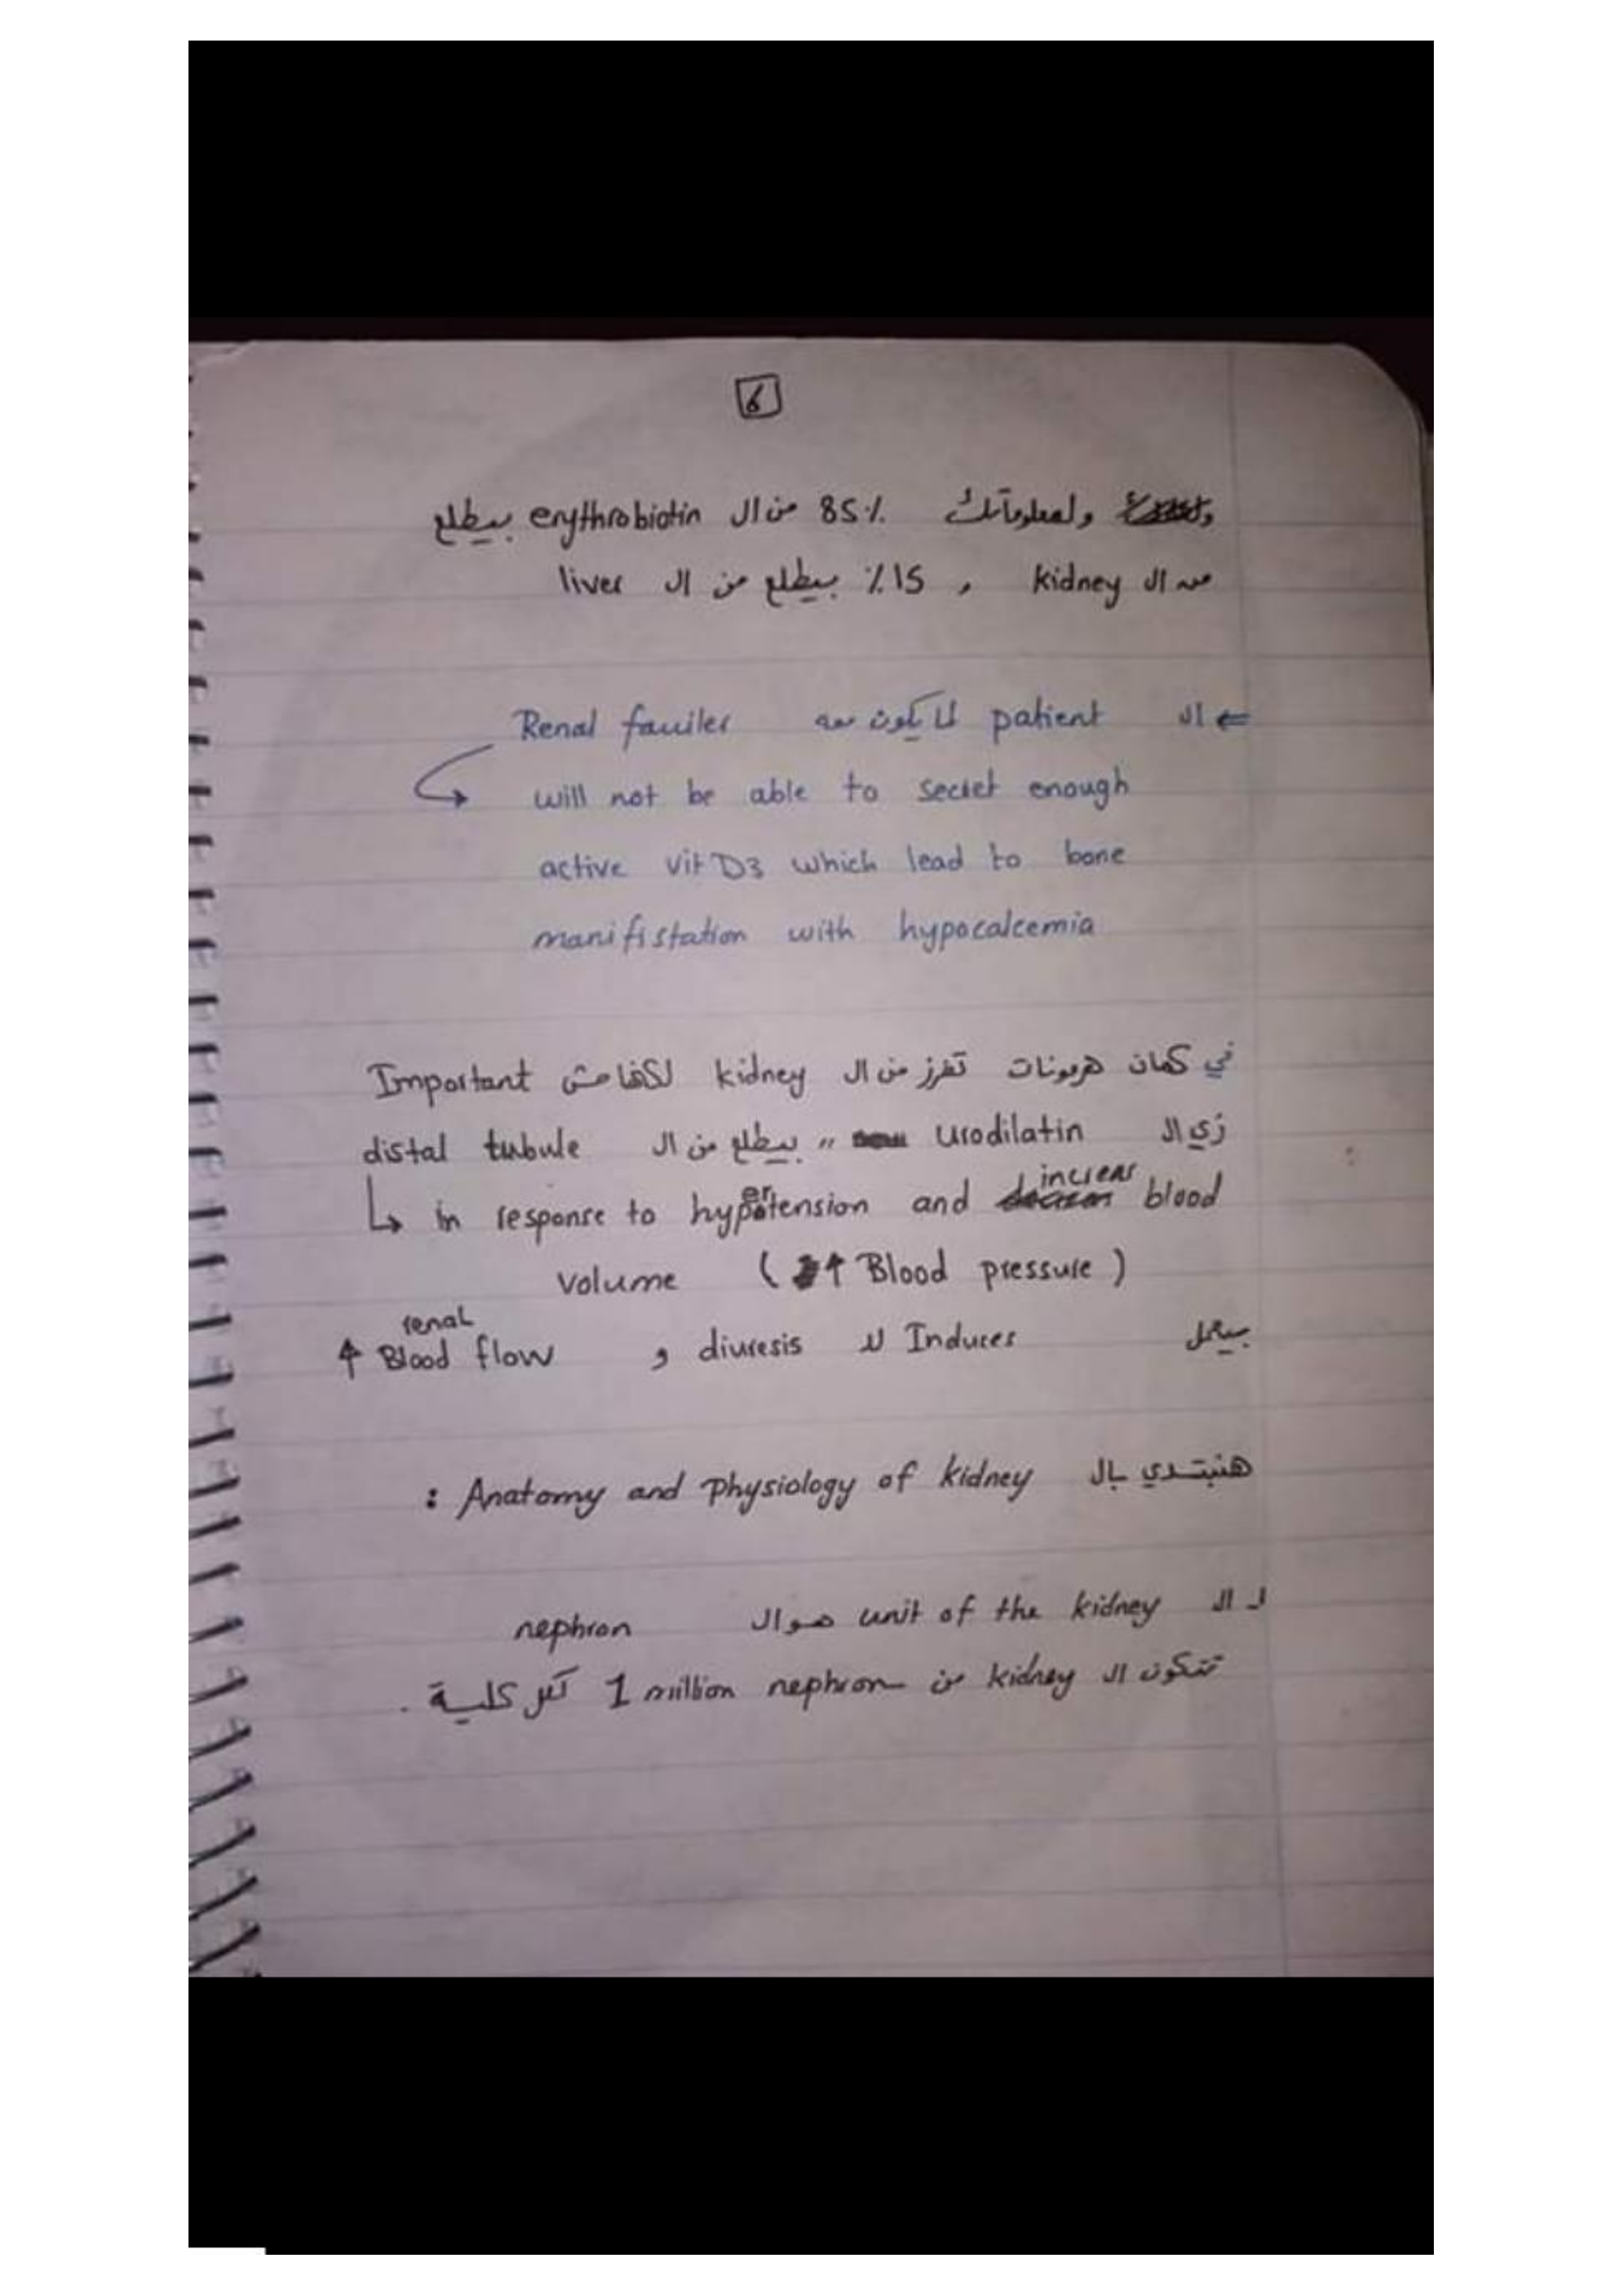 6
ولمعلوماتك 85٪ من ال erythrobiotin بيطلع
من ال kidney , 15٪ بيطلع من ال liver
⇐ ال patient لما يكون معه Renal fauiler
will not be able to secret enough
active vit D3 which lead to bone
manifistation with hypocalcemia
في كمان هرمونات تفرز من ال kidney لكنها مش Important
زي ال urodilatin " بيطلع من ال distal tubule
↳ in response to hypertension and increas blood
volume (↑ Blood pressure)
بيعمل Induces لل diuresis و ↑ renal Blood flow
هنبتدي بال Anatomy and Physiology of kidney :
ال unit of the kidney هو ال nephron
تتكون ال kidney من 1 million nephron لكل كلية .